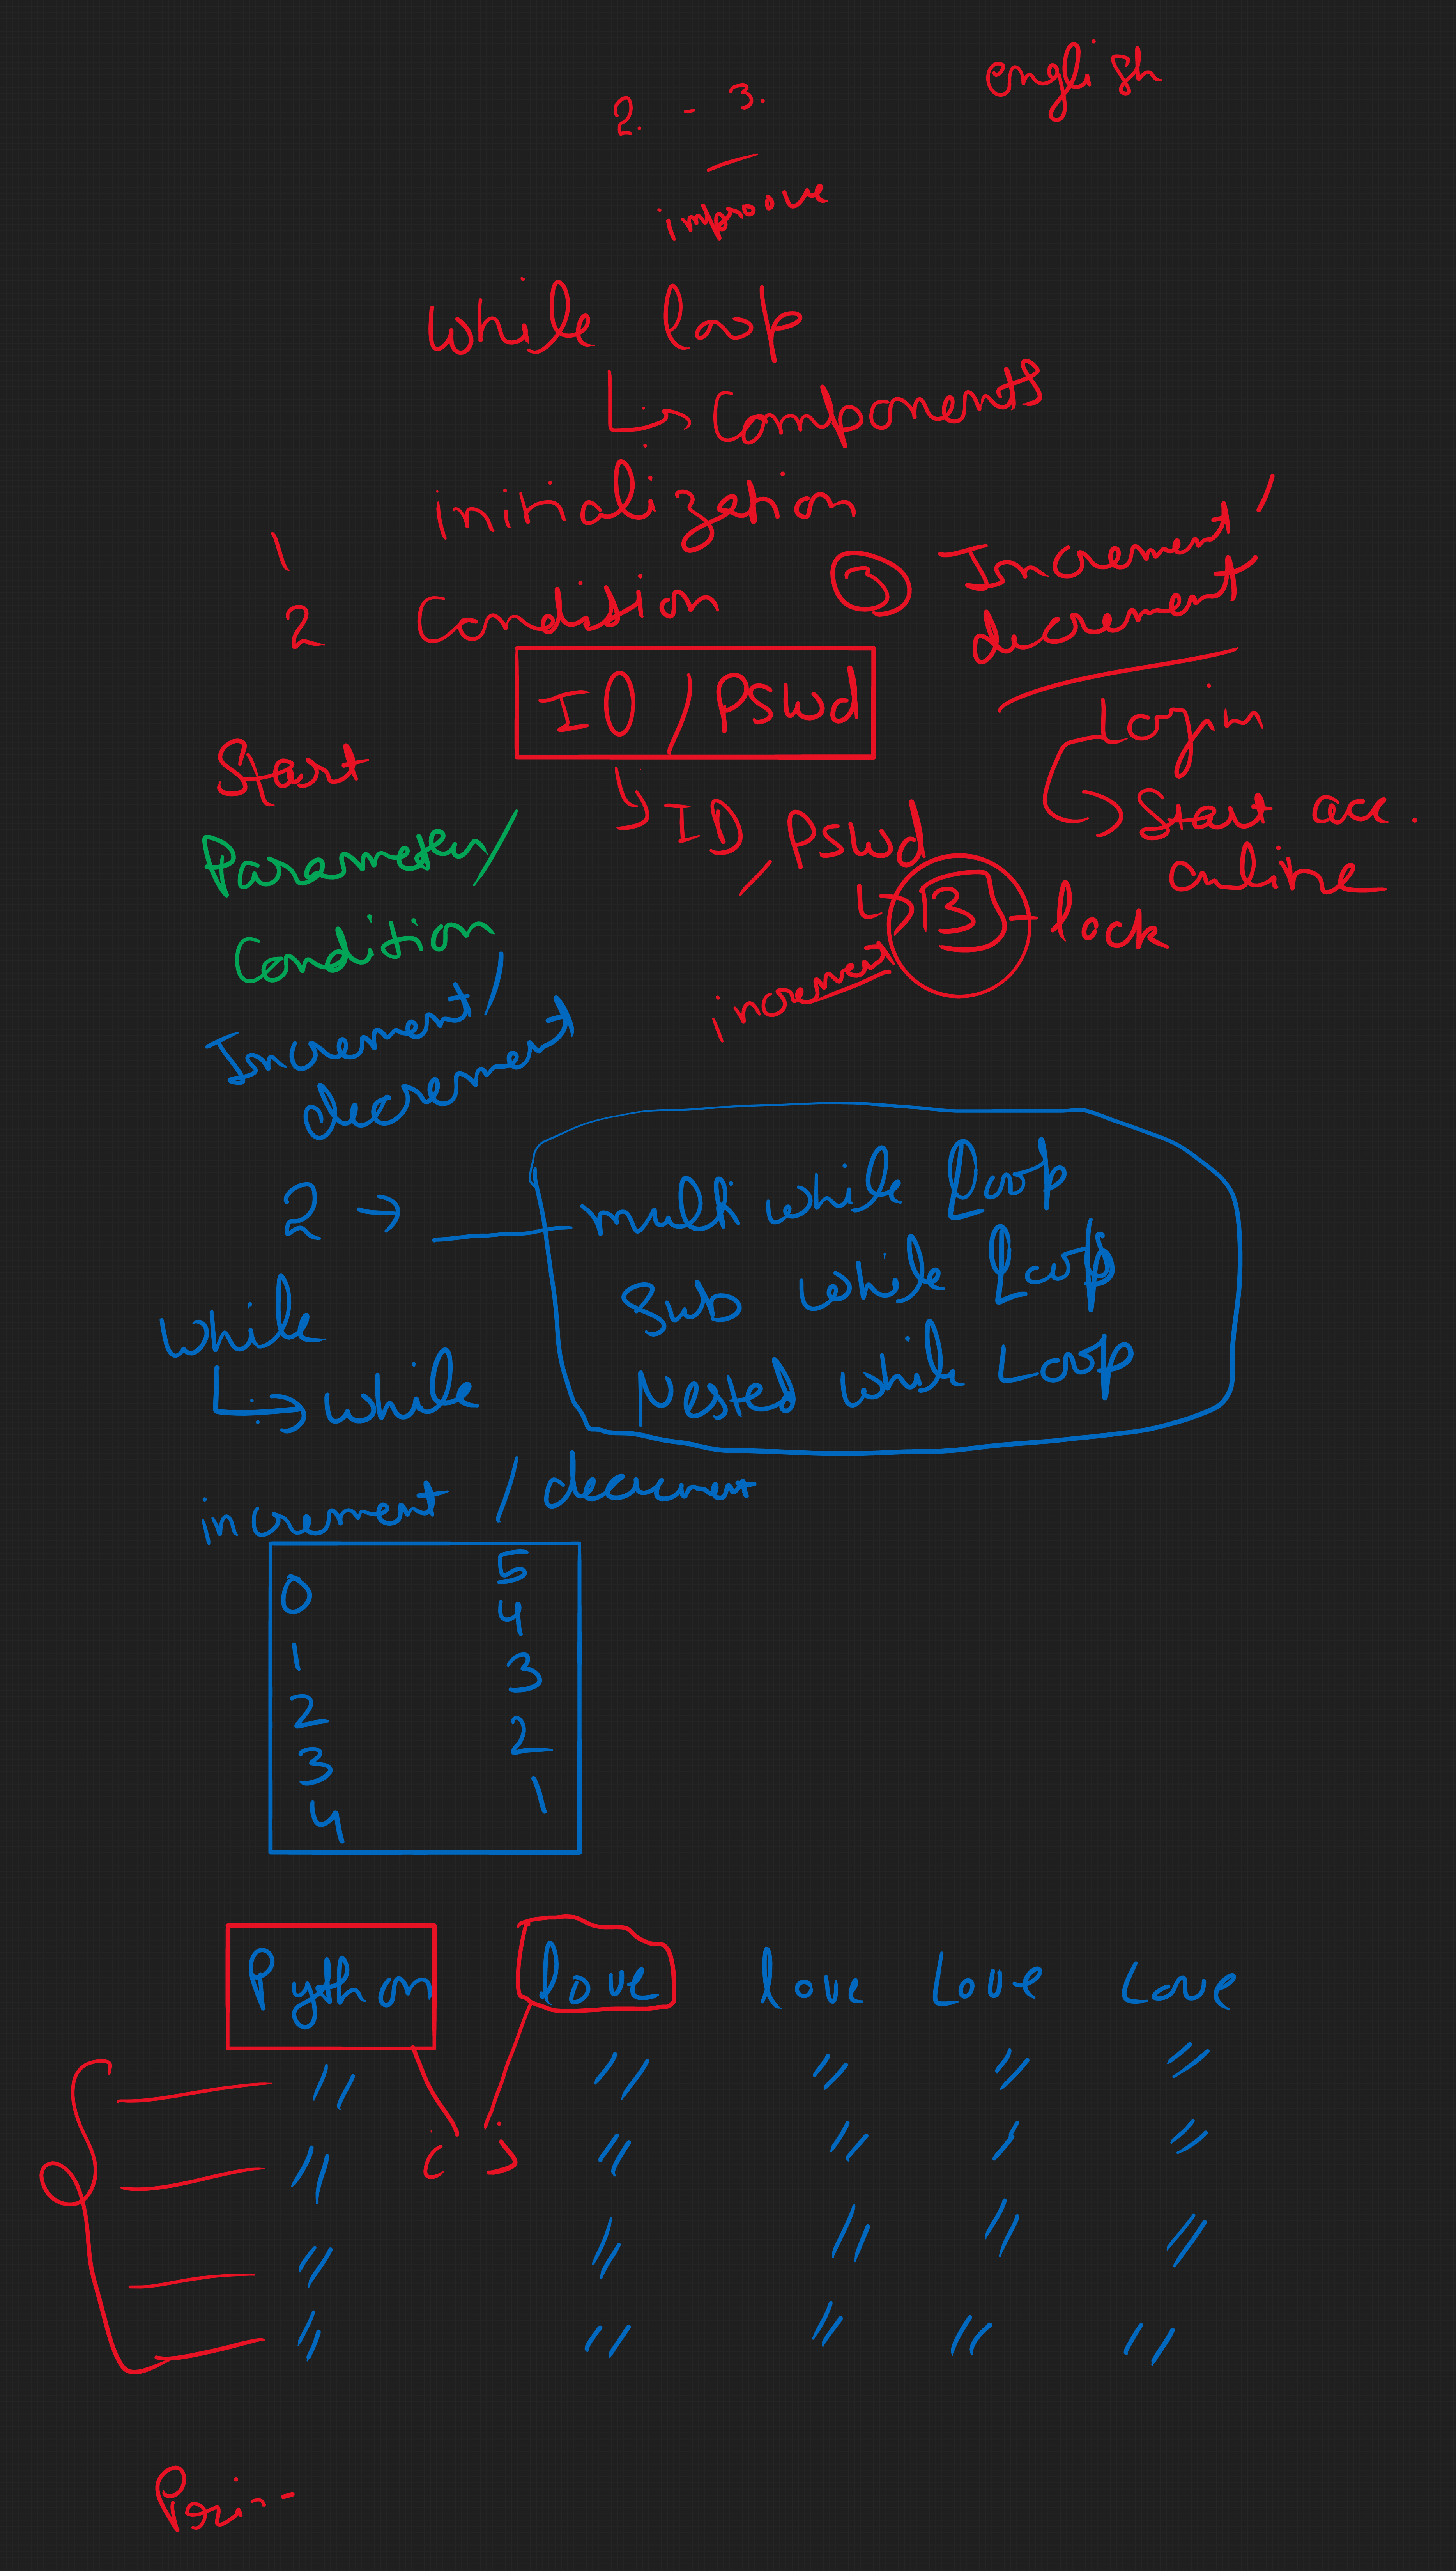 english
2. - 3.
improove
while loop
↳ Components
1 initialization
2 Condition
③ Increment /
decrement
ID / PSwd
Login
↳ Start acc.
online
Start
Parameter /
Condition
Increment /
decrement
↳ ID, PSwd
↳ 3 - lock
increment
2 → multi while loop
Sub while loop
Nested while Loop
while
↳ while
increment / decrement
0 5
1 4
2 3
3 2
4 1
Python love love Love Love
" " " " "
" ( ) " " " "
" " " " "
" " " " "